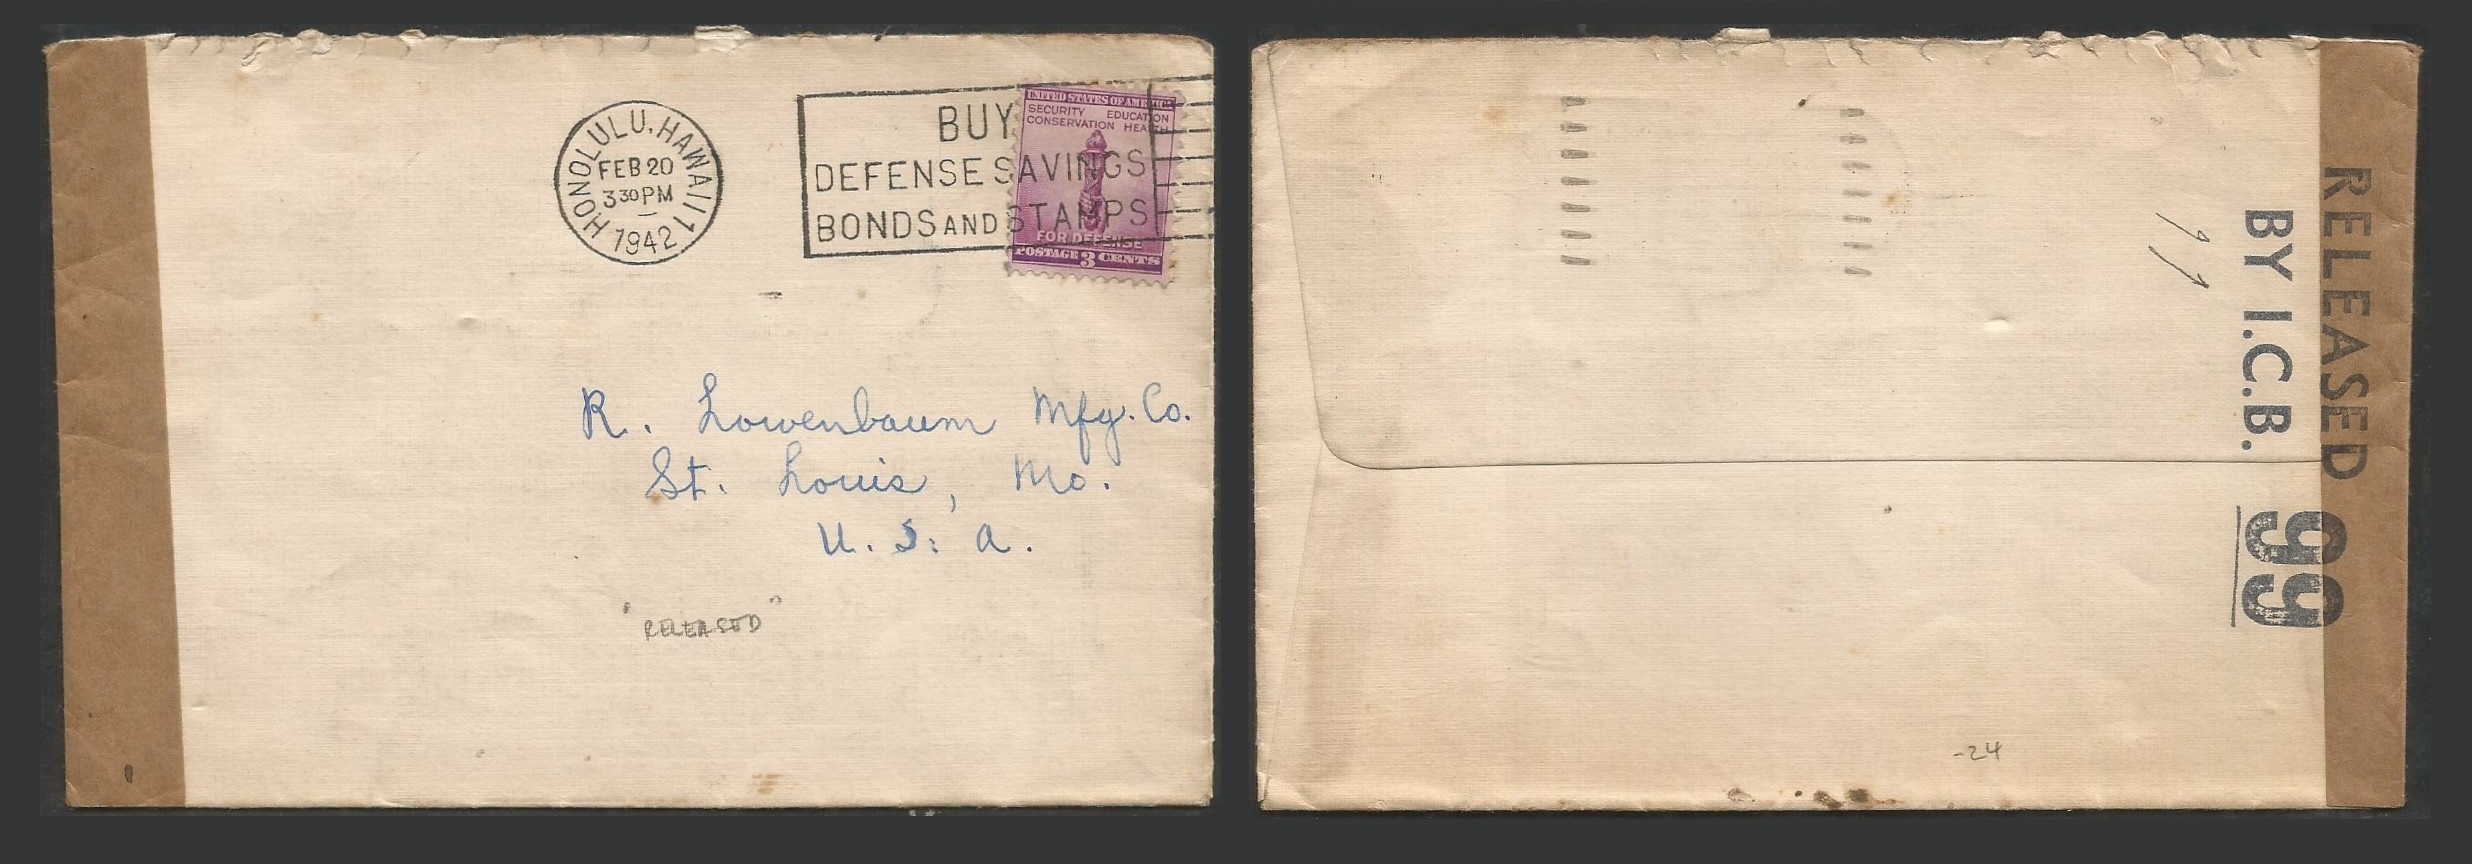 HONOLULU, HAWAII 1
FEB 20
3 30 PM
1942
BUY
DEFENSE SAVINGS
BONDS AND STAMPS
UNITED STATES OF AMERICA
SECURITY EDUCATION
CONSERVATION HEALTH
FOR DEFENSE
POSTAGE 3 CENTS
R. Lowenbaum Mfg. Co.
St. Louis, Mo.
U. S. A.
"RELEASED"
RELEASED
BY I.C.B.
99
-24